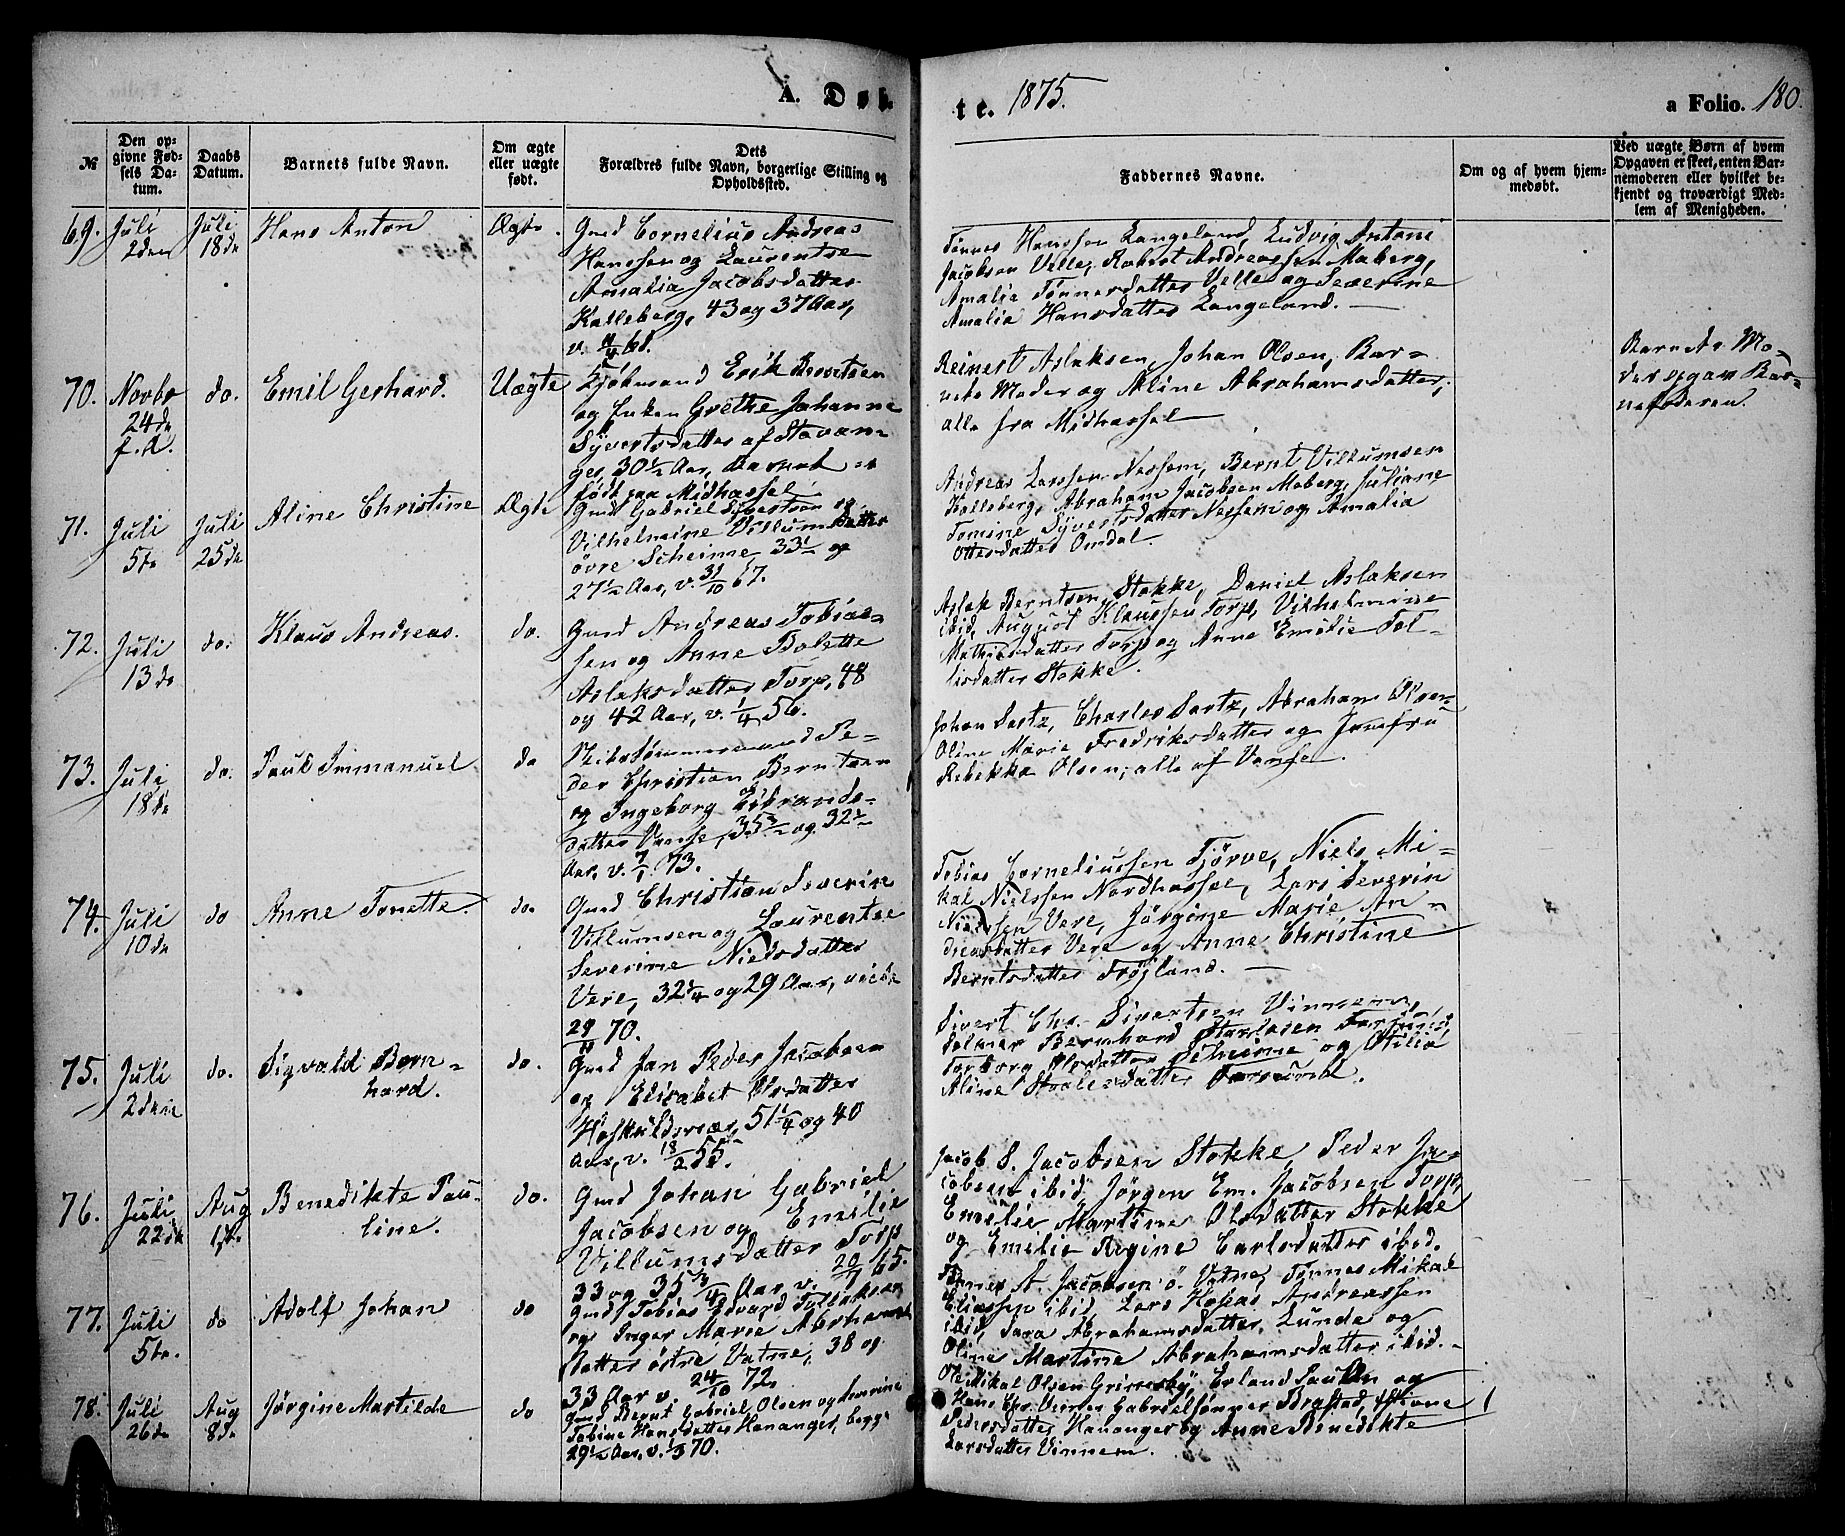 A. Døb-
te. 1875.
a Folio. 180.
№
Den op-
givne Fød-
sels Da-
tum.
Daabs
Datum.
Barnets fulde Navn.
Om ægte
eller uægte
født.
Dets
Forældres fulde Navn, borgerlige Stilling og
Opholdssted.
Faddernes Navne.
Om og af hvem hjem-
medøbt.
Ved uægte Børn af hvem
Opgaven er skeet, enten Bar-
nemoderen eller hvilket be-
kjendt og troværdigt Med-
lem af Menigheden.
69. Juli
2den
Juli
18de
Hans Anton
Ægte.
Gmd Cornelius Andreas
Hanssen og Laurentse
Amalia Jacobsdatter
Kalleberg, 43 og 37 Aar,
Tønnes Hanssen Langeland, Ludvig Antoni
Jacobsen Velle, Robert Andreassen Maberg,
Amalie Tønnesdatter Velle og Severine
Amalia Hansdatter Langeland.
70. Novbr
24de
f. A.
do.
Emil Gerhard.
Uægte
Kjøbmand Erik Berntsen
og Enken Grethe Johanne
Syvertsdatter af Stavan-
ger, 30½ Aar, Barnet er
født paa Midhassel
Reinert Aslaksen, Johan Olsen, Bar-
nets Moder og Aline Abrahamsdatter,
alle fra Midhassel
Barnets Mo-
der opgav Bar-
nefaderen.
71. Juli
5te
Juli
25de
Aline Christine
Ægte
Gmd Gabriel Sivertsen og
Vilhelmine Villumsdatter
øvre Skeime, 33½ og
27½ Aar, v. 31/10 67.
Andreas Larssen Nessem, Bernt Villumsen
Kalleberg, Abraham Jacobsen Maberg, Juliane
Tomine Syvertsdatter Nessem og Amalia
Ottosdatter Omdal.
72. Juli
13de
do.
Klaus Andreas.
do.
Gmd Andreas Tobias-
sen og Anne Bolette
Aslaksdatter Torp, 48
og 42 Aar, v. 1/4 56.
Aslak Berntsen Stokke, Daniel Aslaksen
ibid, August Klaussen Torp, Vilhelmine
Mathiasdatter Torp og Anne Emilie Tol-
lisdatter Stokke.
73. Juli
18de
do.
Paul Immanuel
do
Skibstømmermand Pe-
der Christian Berntsen
og Ingeborg Gibrands-
datter Vanse, 35¾ og 32½
Aar, v. 7/1 73.
Johan Sartz, Charles Sartz, Abraham Olsen
Oline Marie Fredriksdatter og Jomfru
Rebekka Olsen, alle af Vanse.
74. Juli
10de
do
Anne Tonette.
do.
Gmd Christian Severin
Villumsen og Laurentse
Severine Nielsdatter
Vere, 32¼ og 29 Aar, viede
70.
Tobias Corneliussen Tjørve, Niels Mi-
kal Nielssen Nordhassel, Lars Severin
Nielssen Vere, Jørgine Marie An-
dreasdatter Vere og Anne Christine
Berntsdatter Frøjland.
75. Juli
2den
do.
Sigvald Bern-
hard.
do.
Gmd Jan Peder Jacobsen
og Elisabet Olsdatter
Høskuldsmær, 51¼ og 40
Aar, v. 18/2 55.
Sivert Chr. Sivertsen Vinnem,
Bernhard
Torborg Olsdatter Skeime og Otilia
Aline Staalesdatter Farsund.
76. Juli
22de
Aug
1ste
Benedikte Pau-
line.
do.
Gmd Johan Gabriel
Jacobsen og Emilie
Villumsdatter Torp
33 og 35¾ Aar v. 20/1 65.
Jacob S. Jacobsen Stokke, Peder Ja-
cobsen ibid, Jørgen Em. Jacobsen Torp,
Emelie Martine Olsdatter Stokke
og Emilie Regine Carlsdatter ibid.
77. Juli
5te.
do
Adolf Johan
do
Gmd Tobias Edvard Tollaksen
og Inger Marie Abrahams-
datter østre Vatne, 38 og
33 Aar v. 24/10 72.
Tønnes A. Jacobsen ø. Vatne, Tønnes Mikal
Eliassen ibid, Lars Hoseas Andreassen
ibid, Sara Abrahamsdatter Lunde og
Oline Martine Abrahamsdatter ibid.
78. Juli
26de
Aug
8de
Jørgine Martilde
do
Gmd Bernt Gabriel Olsen og
Tobine Hansdatter Hananger, begge
29½ Aar, v. 70.
Ole Mikal Olsen Grimsby, Erland Paulsen og
Hans Chr. Gabrielsønner Brastad, Stine
Pedersdatter Hananger og Anne Benedikte
Larsdatter Vinnem.